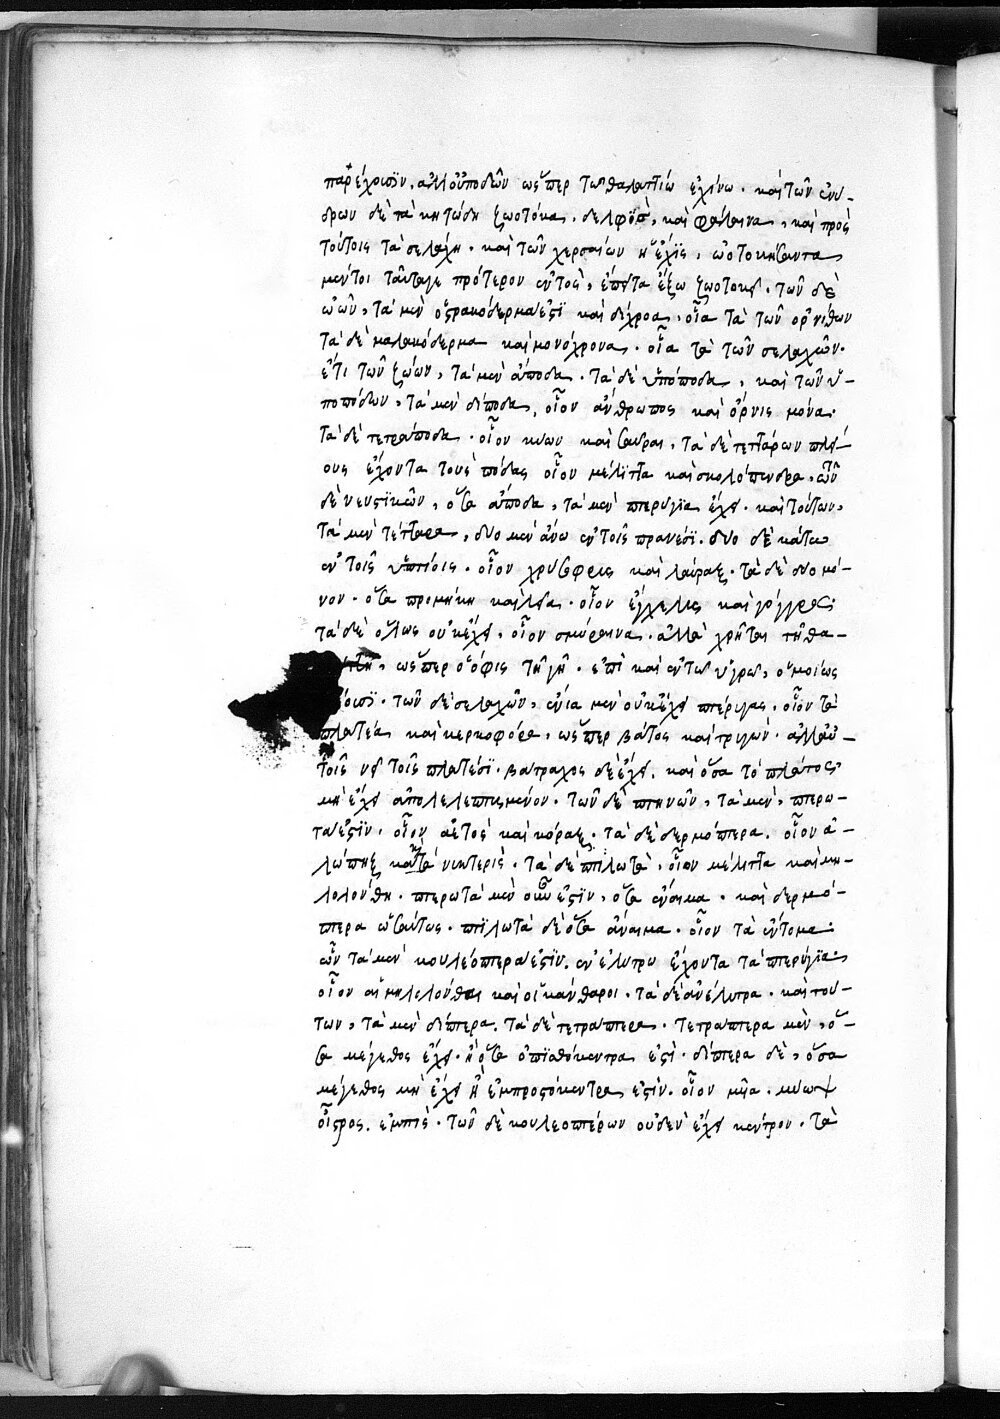 παρέχουσιν. ἀλλ' οὐ ποδῶν ὥσπερ τῶ θαλαττίω ἐχίνω. καὶ τῶν ἐνύ-
δρων δὲ τὰ κητώδη ζωοτόκα. δελφὶς, καὶ φάλαινα, καὶ πρὸς
τούτοις τὰ σελάχη. καὶ τῶν χερσαίων ἡ ἔχις, ὠοτοκήσαντα
μέντοι ταῦτα γε πρότερον ἐντὸς, ἔπειτα ἔξω ζωοτοκεῖ. τῶν δὲ
ὠῶν, τὰ μὲν ὀστρακόδερμα ἐστὶ καὶ δίχροα, οἷα τὰ τῶν ὀρνίθων
τὰ δὲ μαλακόδερμα καὶ μονόχροα. οἷα τὰ τῶν σελαχῶν.
ἔτι τῶν ζώων, τὰ μὲν ἄποδα. τὰ δὲ ὑπόποδα, καὶ τῶν ὑ-
ποπόδων, τὰ μὲν δίποδα, οἷον ἄνθρωπος καὶ ὄρνις μόνα.
τὰ δὲ τετράποδα. οἷον κύων καὶ σαῦραι, τὰ δὲ τεττάρων πλεί-
ους ἔχοντα τοὺς πόδας οἷον μέλιττα καὶ σκολόπενδρα, τῶν
δὲ νευστικῶν, ὅσα ἄποδα, τὰ μὲν πτερύγια ἔχει. καὶ τούτων,
τὰ μὲν τέτταρα, δύο μὲν ἄνω ἐν τοῖς πρανέσι. δύο δὲ κάτω
ἐν τοῖς ὑπτίοις. οἷον χρύσοφρις καὶ λαύραξ. τὰ δὲ δύο μό-
νον. ὅσα προμήκη καὶ λεῖα. οἷον ἐγχέλεις καὶ γόγγροι.
τὰ δὲ ὅλως οὐκ ἔχει, οἷον σμύραινα. ἀλλὰ χρῆται τῆ θα-
λάττη, ὥσπερ ὁ ὄφις τῆ γῆ. ἐπὶ καὶ ἐν τῶ ὑγρῶ, ὁμοίως
τῶν δὲ σελαχῶν, ἔνια μὲν οὐκ ἔχει πτέρυγας. οἷον τὰ
πλατέα καὶ κερκοφόρα, ὥσπερ βάτος καὶ τρυγών. ἀλλ' αὐ-
τοῖς νεῖ τοῖς πλατέσι. βάτραχος δὲ ἔχει. καὶ ὅσα τὸ πλάτος
μὴ ἔχει ἀπολελεπτυσμένον. τῶν δὲ πτηνῶν, τὰ μὲν, πτερω-
τά ἐστιν. οἷον ἀετὸς καὶ κόραξ. τὰ δὲ δερμόπτερα. οἷον ἀ-
λώπηξ καὶ νυκτερὶς. τὰ δὲ πτιλωτὰ, οἷον μέλιττα καὶ μη-
λολόνθη. πτερωτὰ μὲν οὖν ἐστιν, ὅσα ἔναιμα. καὶ δερμό-
πτερα ὡσαύτως. πτιλωτὰ δὲ ὅσα ἄναιμα. οἷον τὰ ἔντομα.
ὧν τὰ μὲν κουλεόπτερα ἐστιν. ἐν ἐλύτρω ἔχοντα τὰ πτερύγια.
οἷον αἱ μηλολόνθαι καὶ οἱ κάνθαροι. τὰ δὲ ἀνέλυτρα. καὶ τού-
των, τὰ μὲν δίπτερα. τὰ δὲ τετράπτερα. τετράπτερα μὲν, ὅ-
σα μέγεθος ἔχει. ἢ ὅσα ὀπισθόκεντρα ἐστὶ. δίπτερα δὲ, ὅσα
μέγεθος μὴ ἔχει ἢ ἐμπροσθόκεντρα ἐστιν. οἷον μυῖα. μύωψ
οἶστρος. ἐμπὶς. τῶν δὲ κουλεοπτέρων οὐδὲν ἔχει κέντρον. τὰ